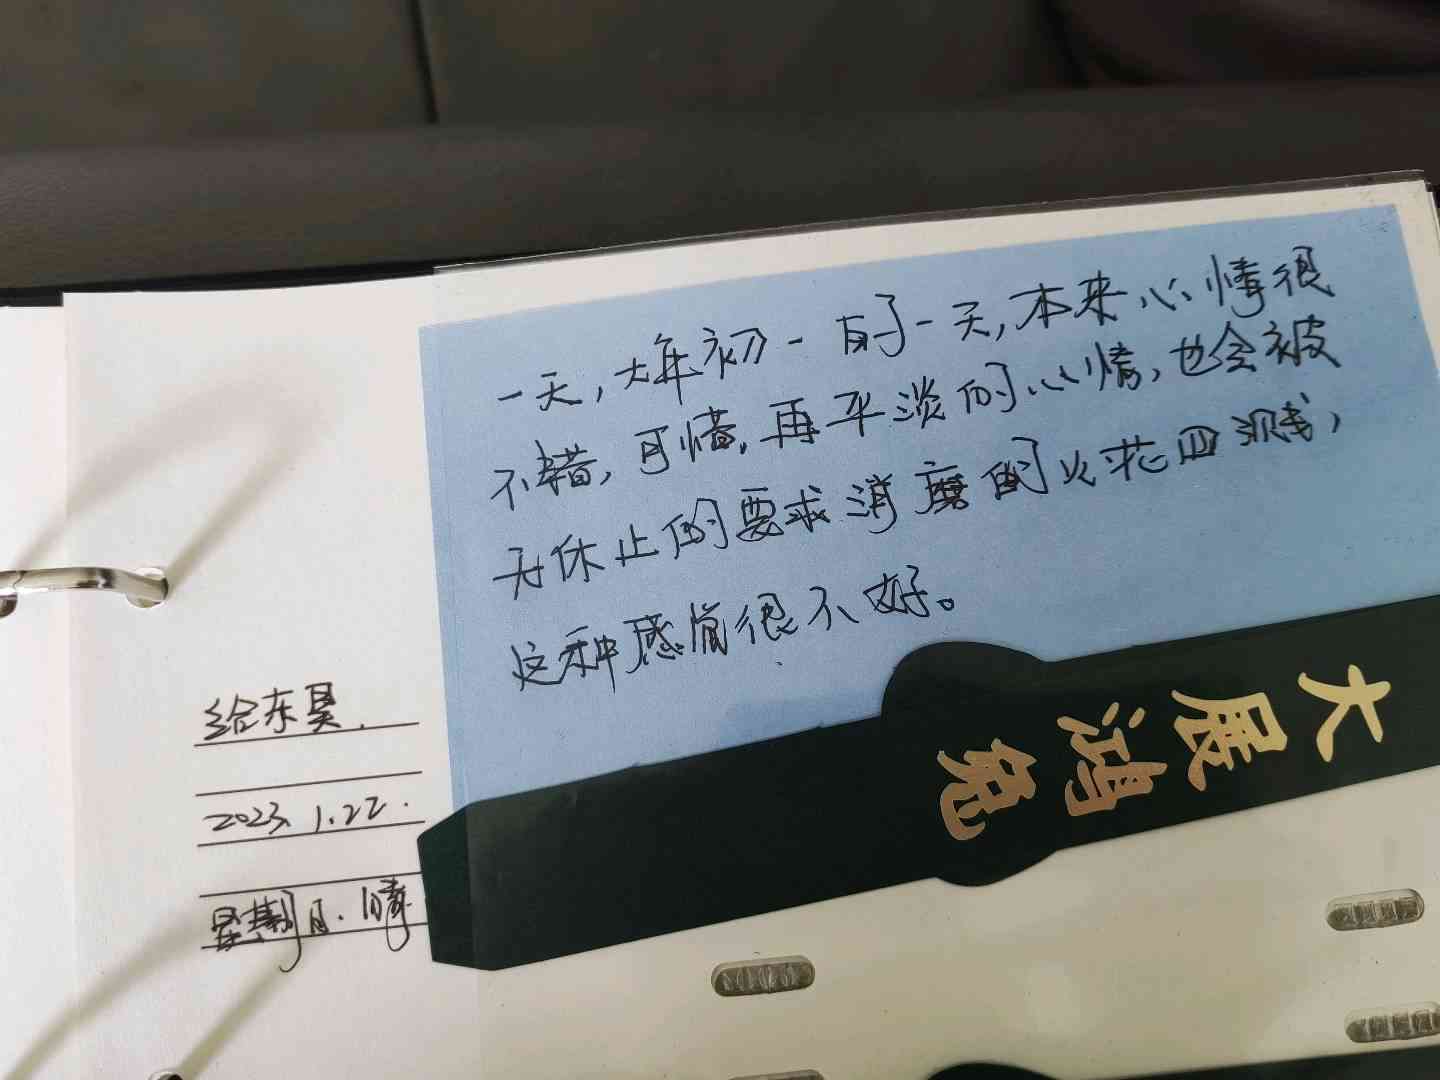 一天，大年初一的一天，本来心情很
不错，可惜，再平淡的心情，也会被
无休止的要求消磨的火花四溅，
这种感觉很不好。
给东昊.
2023.1.22.
星期日.晴
大展鸿兔